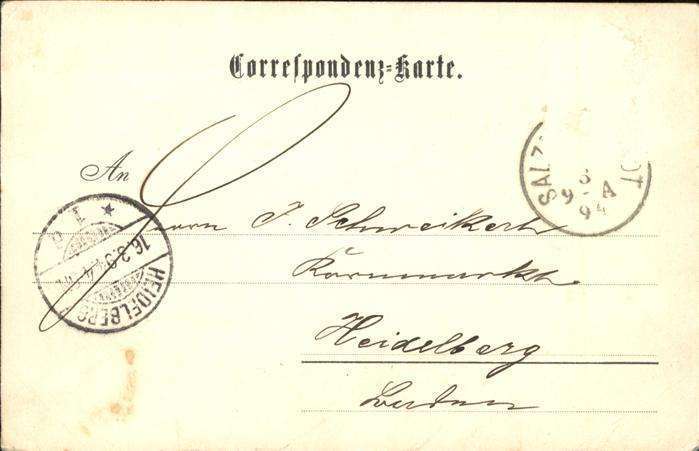 Correspondenz-Karte.
An
Herrn J. Schweikert
Kornmarkt
Heidelberg
Baden
HEIDELBERG
16.3.9
SALZ
3
9 A
94